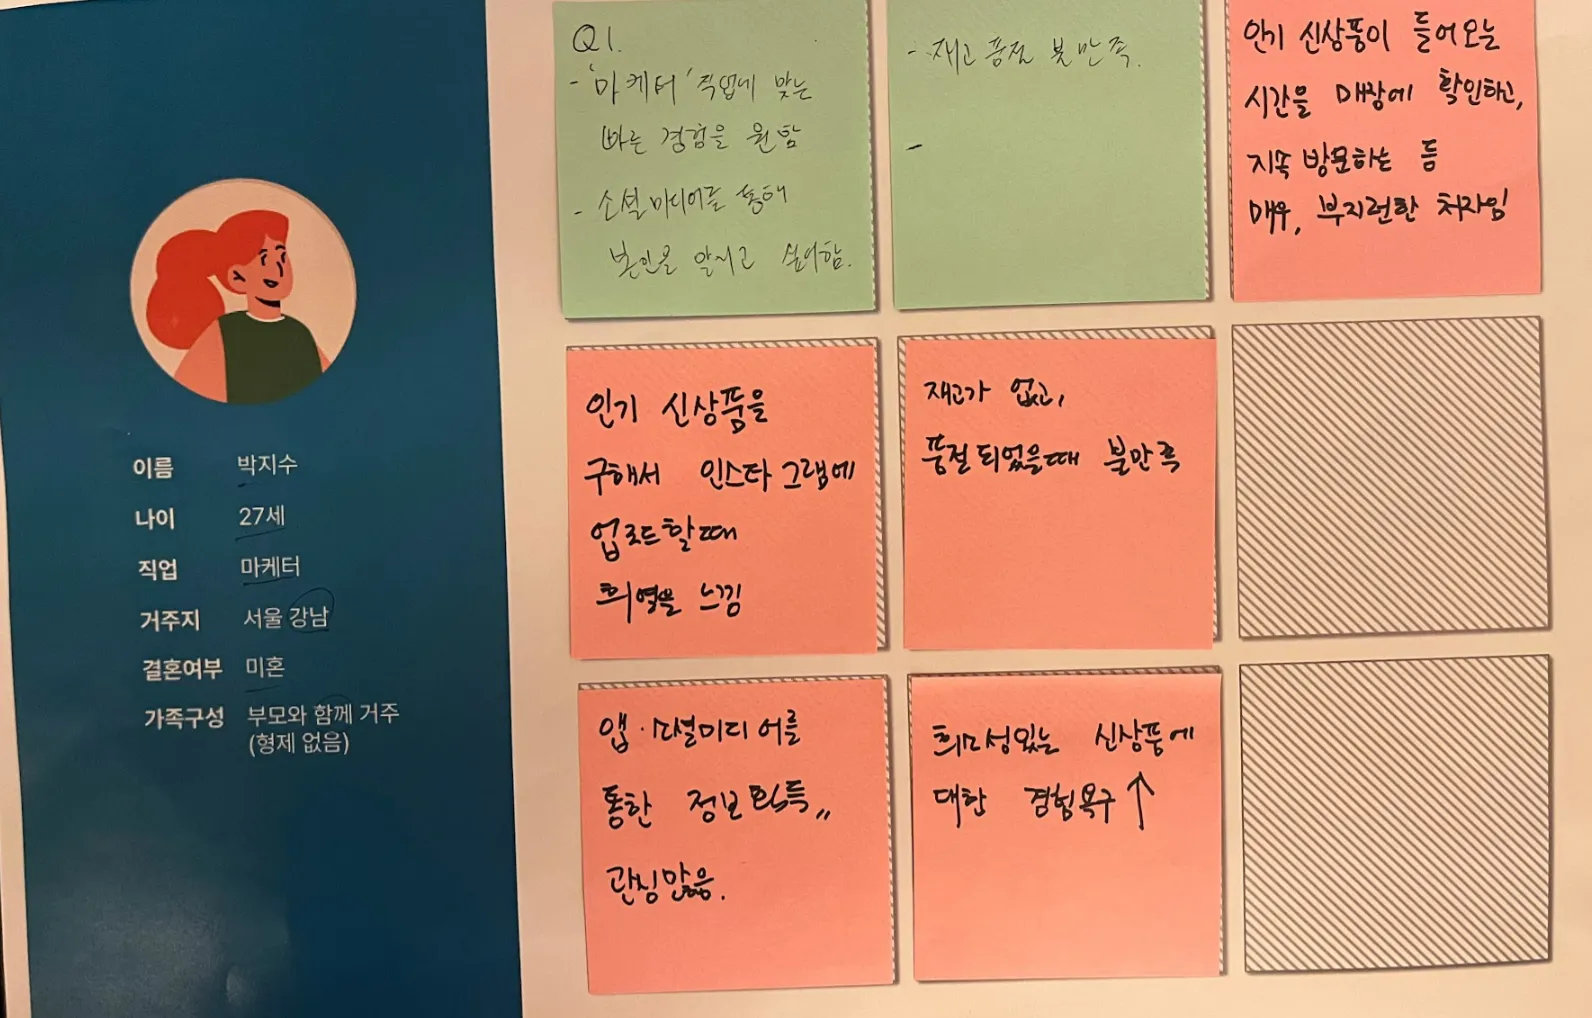 이름 박지수
나이 27세
직업 마케터
거주지 서울 강남
결혼여부 미혼
가족구성 부모와 함께 거주
(형제 없음)
Q1.
- '마케터' 직업에 맞는
빠른 경험을 원함
- 소셜미디어를 통해
본인을 알리고 싶어함.
- 재고 품절 불만족.
-
인기 신상품이 들어오는
시간을 매장에 확인하고,
지속 방문하는 등
매우, 부지런한 처자임
인기 신상품을
구해서 인스타그램에
업로드할때
희열을 느낌
재고가 없고,
품절되었을때 불만족
앱·소셜미디어를
통한 정보획득,,
관심많음.
희소성있는 신상품에
대한 경험욕구↑